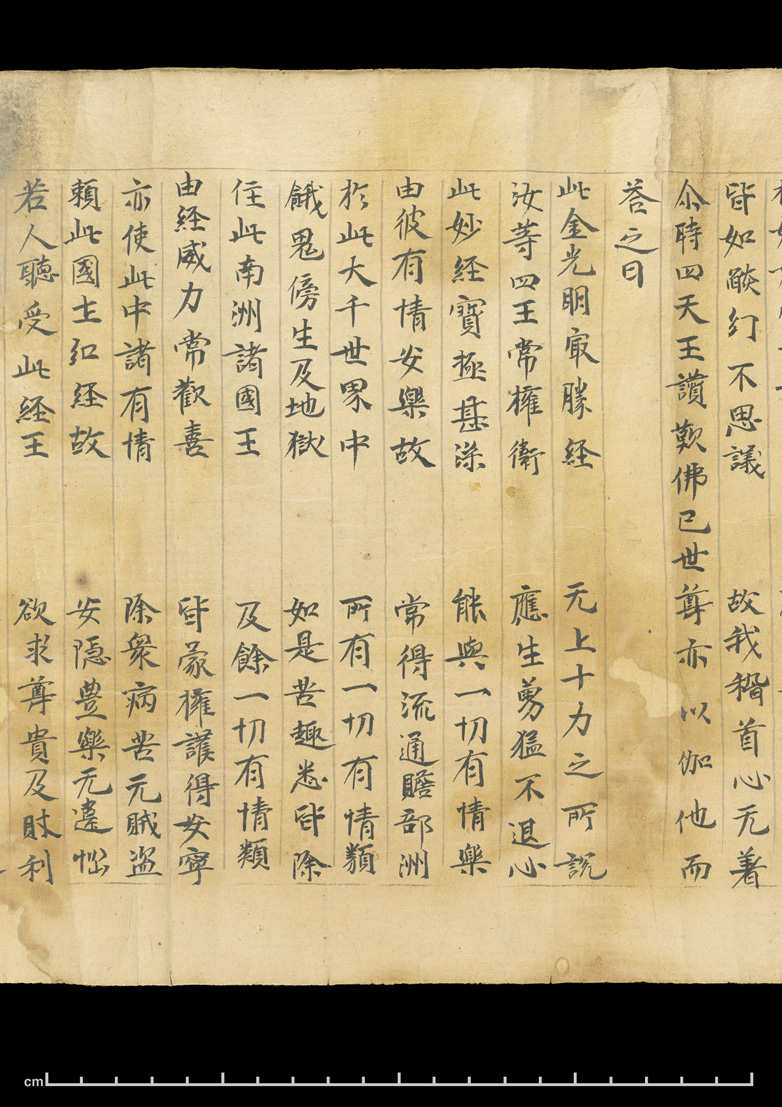 皆如𦦨幻不思議　故我稽首心无著
尒時四天王讚歎佛已世尊亦以伽他而
荅之曰
此金光明㝡勝經　无上十力之所說
汝等四王常擁衛　應生勇猛不退心
此妙經寶極甚深　能與一切有情樂
由彼有情安樂故　常得流通贍部洲
於此大千世界中　所有一切有情類
餓鬼傍生及地獄　如是苦趣悉皆除
住此南洲諸國王　及餘一切有情類
由經威力常歡喜　皆蒙擁護得安寧
亦使此中諸有情　除衆病苦无賊盜
賴此國土弘經故　安隱豊樂无違惱
若人聽受此經王　欲求尊貴及財利